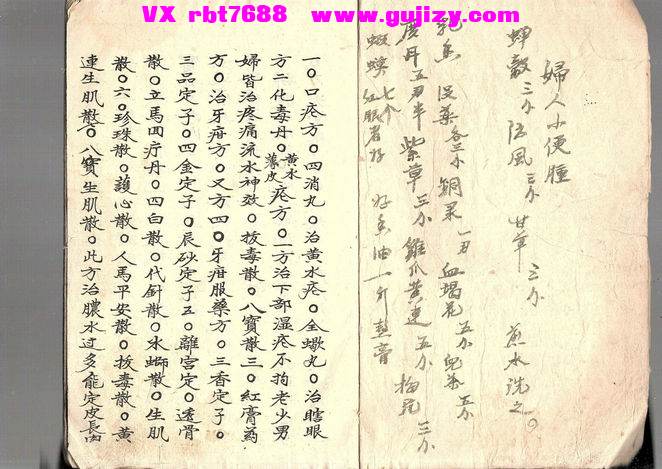 VX rbt7688 www.gujizy.com
婦人小便腫
蟬殼三分 防風三分 甘草三分 煎水洗之。
乳魚 沒藥各三分 銅录一刃 血竭花五分 兒茶五分
黃丹五刃半 紫草三分 雞爪黃連五分 梅花三分
七个 紅眼者好 好香油一斤熬膏
一〇口疙方〇四消丸〇治黃水疙〇全蠍丸〇治瞎眼
方二化毒丹〇黃水薄皮疙方〇一方治下部濕疙不拘老少男
婦皆治疼痛流水神效〇拔毒散〇八寶散三〇紅膏葯
方〇治牙疳方〇又方四〇牙疳服藥方〇三香定子〇
三品定子〇四金定子〇辰砂定子五〇離宮定〇透骨
散〇立馬回疔丹〇四白散〇代針散〇水螄散〇生肌
散〇六〇珍珠散〇護心散〇人馬平安散〇拔毒散〇黃
連生肌散〇八寶生肌散〇此方治膿水过多能定皮長肉